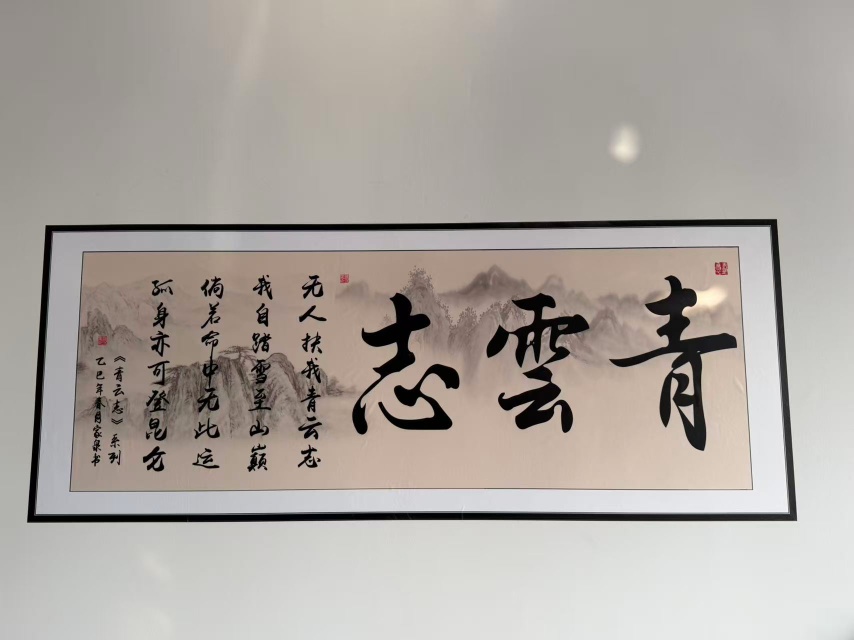 青雲志
无人扶我青云志
我自踏雪至山巅
倘若命中无此运
孤身亦可登昆仑
《青云志》系列
乙巳年春月家泉书